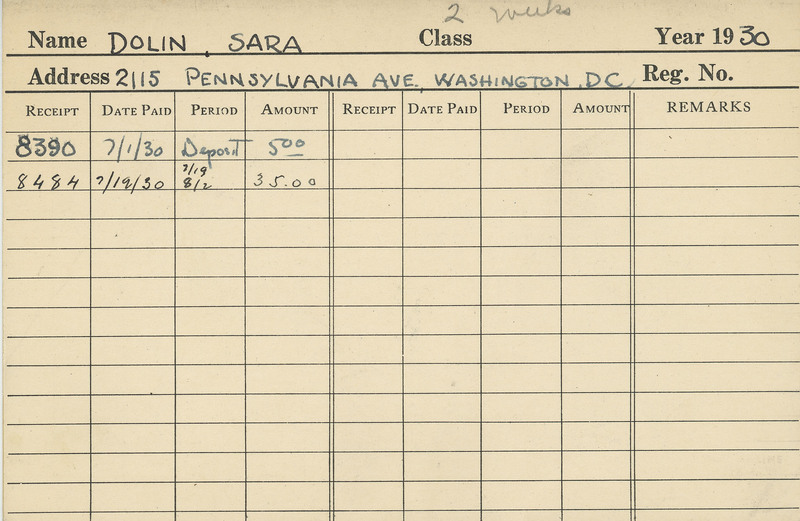 2 weeks
Name DOLIN, SARA Class Year 1930
Address 2115 PENNSYLVANIA AVE, WASHINGTON, DC, Reg. No.
RECEIPT DATE PAID PERIOD AMOUNT RECEIPT DATE PAID PERIOD AMOUNT REMARKS
8390 7/1/30 Deposit 5 00
8484 7/19/30 7/19 8/2 35.00